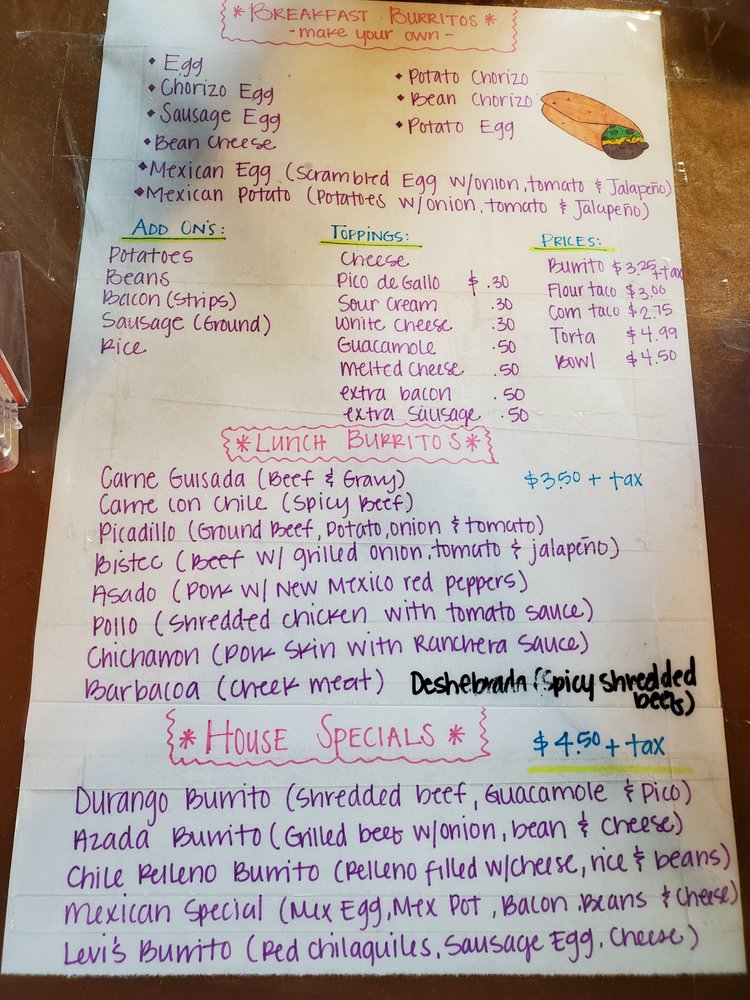 *BREAKFAST BURRITOS*
-make your own-
• Egg
• Chorizo Egg
• Sausage Egg
• Bean Cheese
• Potato Chorizo
• Bean Chorizo
• Potato Egg
• Mexican Egg (Scrambled Egg w/onion, tomato & Jalapeño)
• Mexican Potato (Potatoes w/onion, tomato & Jalapeño)
ADD ON'S:
Potatoes
Beans
Bacon (Strips)
Sausage (Ground)
Rice
TOPPINGS:
Cheese
Pico de Gallo $ .30
Sour Cream .30
White Cheese .30
Guacamole .50
Melted Cheese .50
extra bacon .50
extra sausage .50
PRICES:
Burrito $3.25 + tax
Flour taco $3.00
Corn taco $2.75
Torta $4.99
Bowl $4.50
*LUNCH BURRITOS*
$3.50 + tax
Carne Guisada (Beef & Gravy)
Carne con Chile (Spicy Beef)
Picadillo (Ground Beef, Potato, onion & tomato)
Bistec (Beef w/ grilled onion, tomato & jalapeño)
Asado (Pork w/ New Mexico red peppers)
Pollo (Shredded chicken with tomato sauce)
Chicharron (Pork Skin with Ranchera Sauce)
Barbacoa (Cheek meat) Deshebrada (Spicy shredded beef)
*HOUSE SPECIALS*
$4.50 + tax
Durango Burrito (Shredded beef, Guacamole & Pico)
Azada Burrito (Grilled beef w/onion, bean & cheese)
Chile Relleno Burrito (Relleno filled w/cheese, rice & beans)
Mexican Special (Mex Egg, Mex Pot, Bacon, Beans & Cheese)
Levi's Burrito (Red Chilaquiles, Sausage Egg, Cheese)